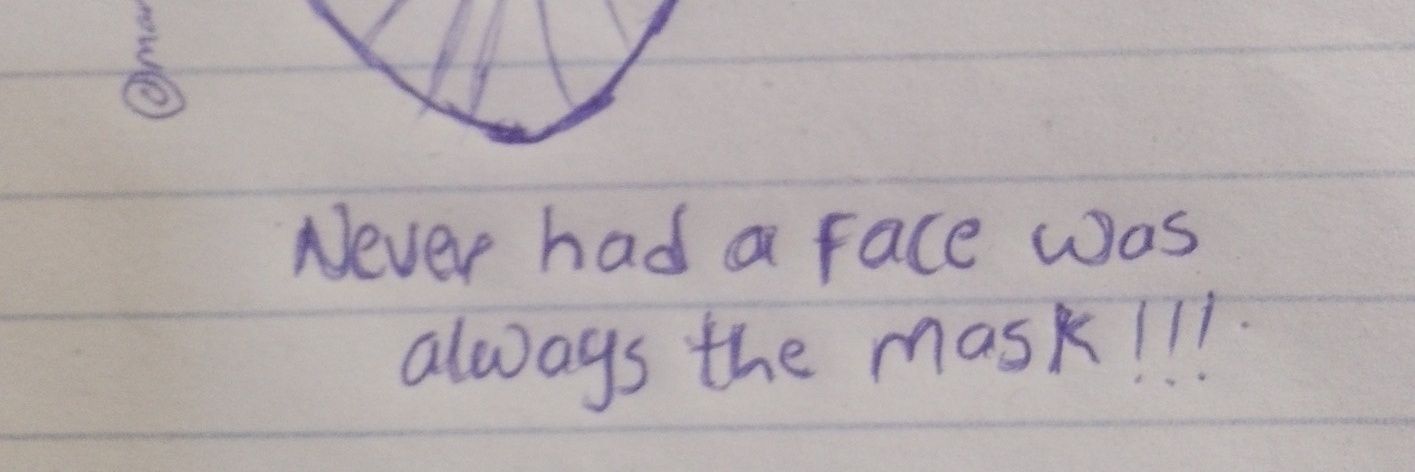 Never had a face was
always the mask!!!